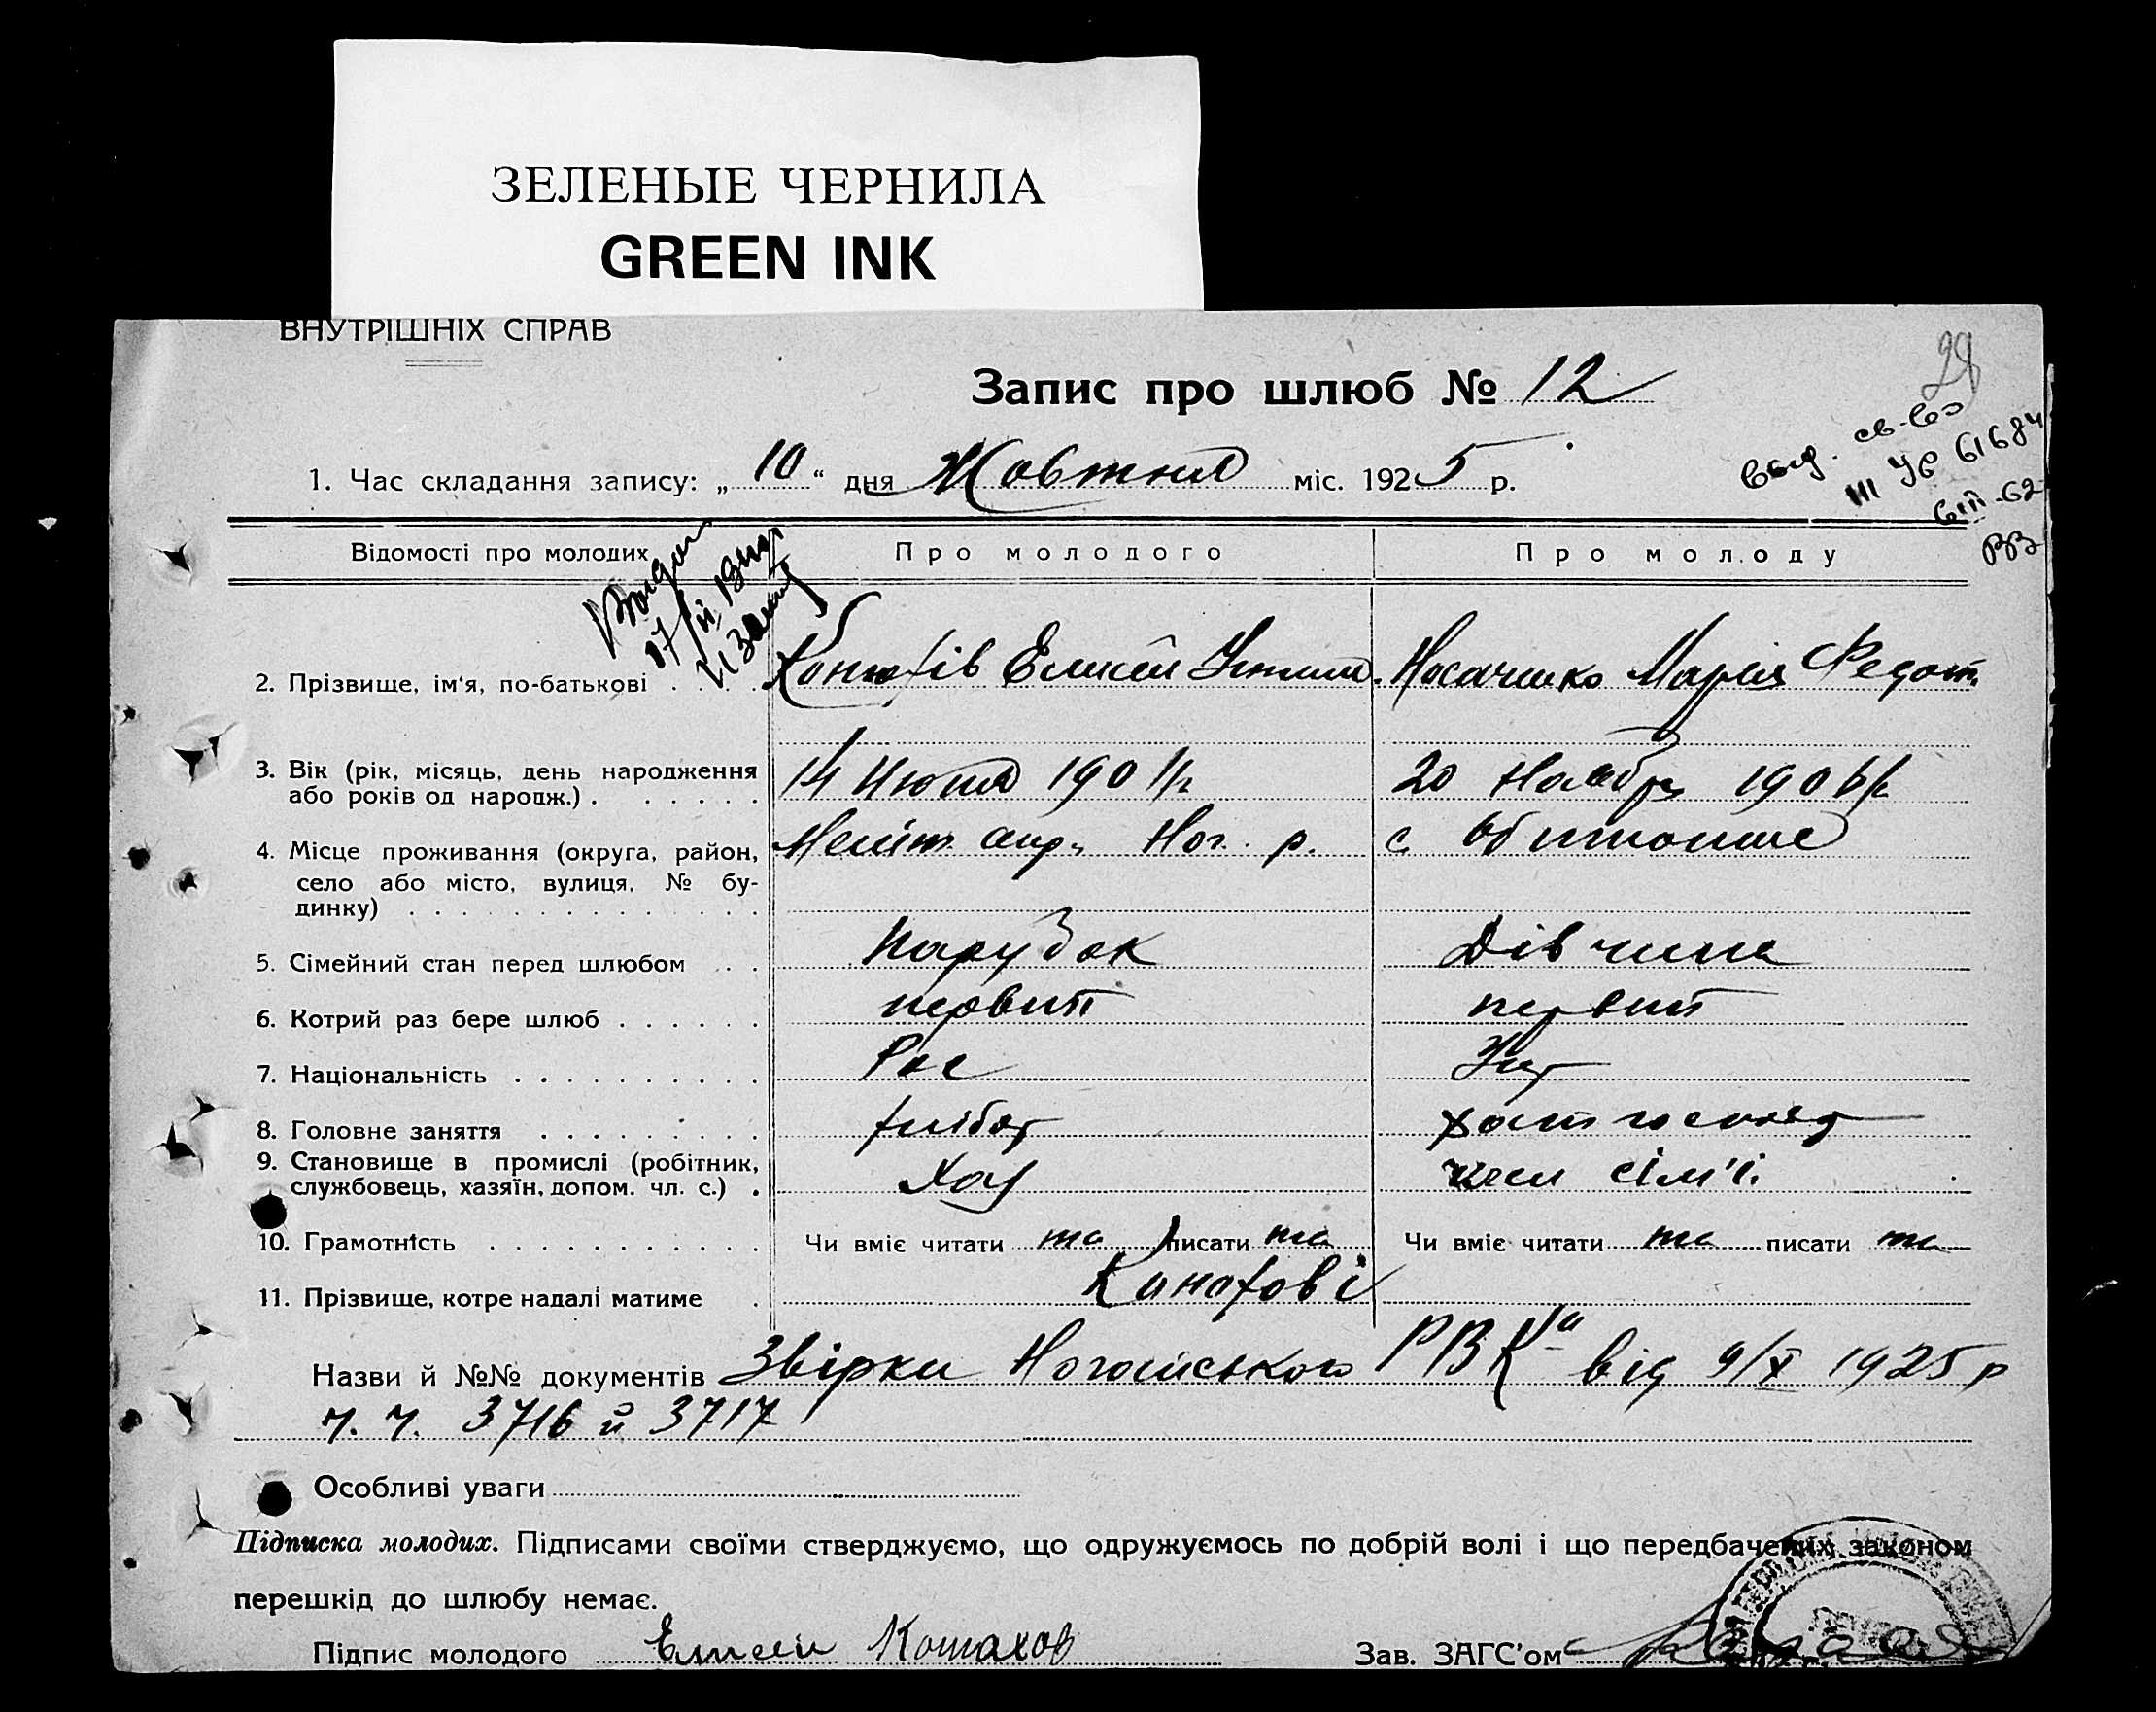 ЗЕЛЕНЫЕ ЧЕРНИЛА
GREEN INK
ВНУТРІШНІХ СПРАВ
28
Запис про шлюб № 12
выд. св-во
III УБ 61684
1. Час складання запису: „10“ дня Жовтня міс. 1925 р.
Відомості про молодих
Про молодого
Про молоду
РВ
2. Прізвище, ім'я, по-батькові
Елисей
Носаченко Марія Федот.
3. Вік (рік, місяць, день народження
або років од нарош.)
14 Июля 1901 р.
20 Ноября 1906 р.
4. Місце проживання (округа, район,
село або місто, вулиця, № бу-
динку)
Меліт. окр. Ног. р.
с. Обиточне
5. Сімейний стан перед шлюбом
Парубок
Дівчина
6. Котрий раз бере шлюб
первий
первий
7. Національність
Рос
Укр
8. Головне заняття
хлібор
хатн господ
9. Становище в промислі (робітник,
службовець, хазяїн, допом. чл. с.)
Хаз
член сім'ї.
10. Грамотність
Чи вміє читати та писати та
Чи вміє читати та писати та
11. Прізвище, котре надалі матиме
Назви й №№ документів Звірки Ногайського РВК'а від 9/X 1925 р
ч. ч. 3716 й 3717
Особливі уваги
Підписка молодих. Підписами своїми стверджуємо, що одружуємось по добрій волі і що передбачених законом
перешкід до шлюбу немає.
Підпис молодого Елисей Конахов
Зав. ЗАГС'ом